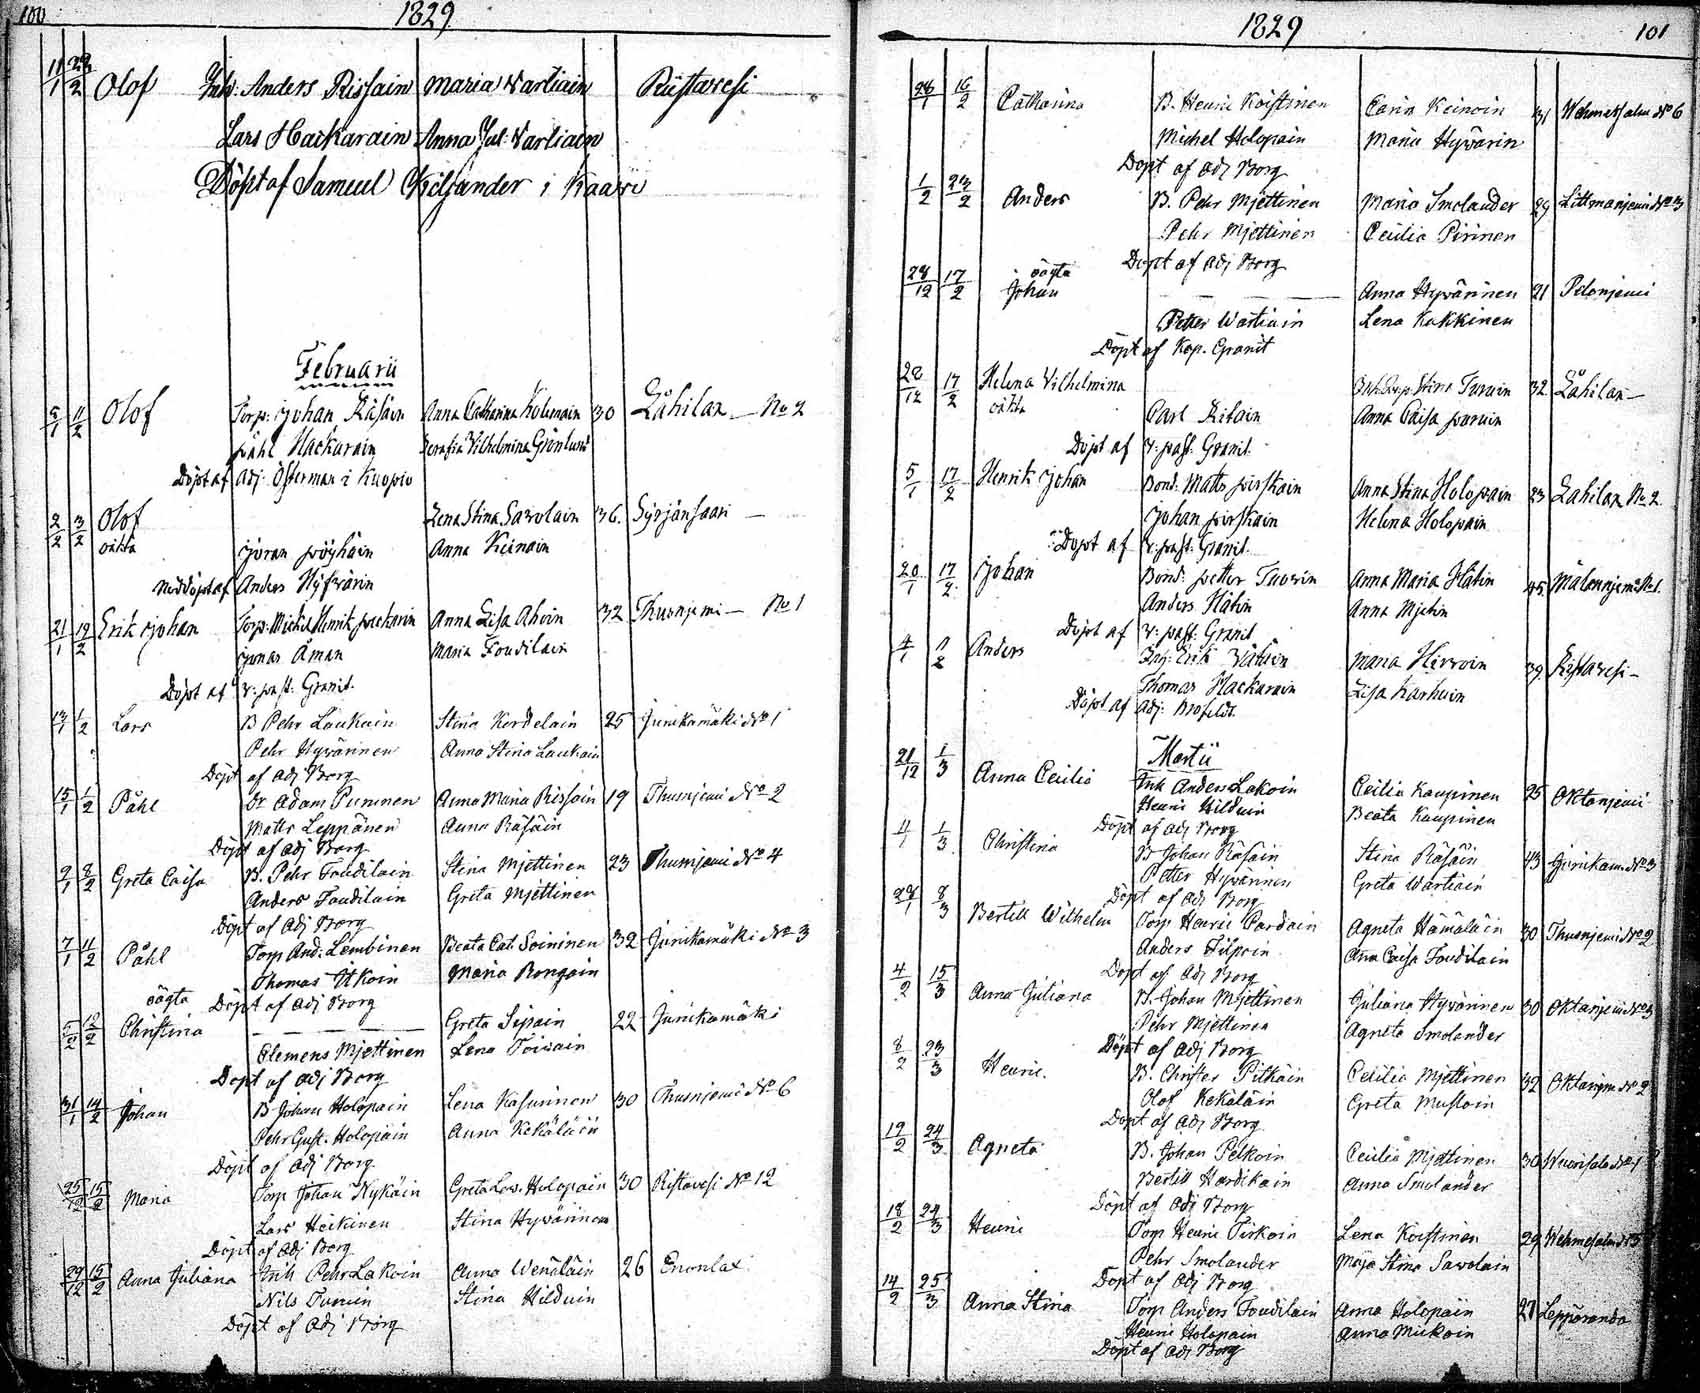 100 1829
11/1 22/2 Olof Inh: Anders Rissain Maria Wartiain Ristavesi
Lars Hackarain Anna Jul: Wartiain
Döpt af Samuel Kiljander i Kaavi
Februarii
5/1 11/2 Olof Torp: Johan Räsäin Anna Catharina Kolemain 30 Låhilax No 2
Påhl Hackarain Serafia Vilhelmina Grönlund
Döpt af Adj: Österman i Kuopio
2/2 3/2 Olof Lena Stina Savolain 36. Syrjänsaari
oäkta Jöran Pöyhöin Anna Keinain
Nöddöpt af Anders Hyfvärin
21/1 19/2 Erik Johan Torp: Michel Henrik Packarin Anna Lisa Ahoin 32 Thusnjemi No 1
Jonas Åman Maria Toudilain
Döpt af V: past: Granit.
13/1 1/2 Lars B Pehr Laukain Stina Kordelain 25 Junikamäki No 1
Pehr Hyvärinen Anna Stina Laukain
Döpt af Adj Borg
15/1 1/2 Påhl Dr Adam Pununen Anna Maria Rissain 19 Thusnjemi No 2
Matts Leppänen Anna Räsäin
Döpt af Adj Borg
9/1 8/2 Greta Caisa B. Pehr Toudilain Stina Mjettinen 23 Thusnjemi No 4
Anders Toudilain Greta Mjettinen
Döpt af Adj Borg
7/1 11/2 Påhl Torp And: Lembinen Beata Cat. Soininen 32 Junikamäki No 3
Thomas Itkoin Maria Rongain
oägta Döpt af Adj Borg
5/2 12/2 Christina Greta Sipain 22 Junikamäki
Clemens Mjettinen Lena Toivain
Döpt af Adj Borg
31/1 14/2 Johan B Johan Holopain Lena Kasurinen 30 Thusnjemi No 6
Pehr Gust. Holopain Anna Kekäläin
Döpt af Adj Borg
25/12 15/2 Maria Torp Johan Nykäin Greta Lov. Holopain 30 Ristavesi No 12
Lars Heikinen Stina Hyvärinen
Döpt af Adj Borg
29/12 15/2 Anna Juliana Inh Pehr Lakoin Anna Wenäläin 26 Enonlax
Nils Tuvuin Stina Hilduin
Döpt af Adj Borg
1829 101
28/1 16/2 Catharina B. Henric Koistinen Carin Keinoin 31 Wehmersalmi No 6
Michel Holopain Maria Hyvärin
Döpt af Adj Borg
1/2 23/2 Anders B. Pehr Mjettinen Maria Smolander 29 Littmanjemi No 3
Pehr Mjettinen Cecilia Pirinen
Döpt af Adj Borg
28/12 17/2 oägta Johan Anna Hyvärinen 21 Pelonjemi
Petter Wartiain Lena Kukkinen
Döpt af Kap. Granit
28/12 17/2 Helena Vilhelmina Stina Turuin 32 Låhilax
oäkta Carl Ritain Anna Caisa Paruin
Döpt af V: past. Granit.
5/1 17/2 Henrik Johan Bond. Matts Pirskain Anna Stina Holopain 23 Låhilax No 2
Johan Pirskain Helena Holopain
Döpt af V: past: Granit.
20/1 17/2 Johan Bond: Petter Tuovin Anna Maria Hätin 45 No 1.
Anders Hätin Anna Mjetin
Döpt af V: past: Granit
4/1 1/2 Anders Inh: Erik Wätäin Maria Hirvoin 39 Ristavesi
Thomas Hackarain Lisa Karhuin
Döpt af Adj: Brofeldt.
Martii
21/12 1/3 Anna Cecilia Inh Anders Lakoin Cecilia Kaupinen 25 Oktanjemi
Henric Hilduin Beata Kaupinen
Döpt af Adj Borg
4/1 1/3 Christina B Johan Räsäin Stina Räsäin 43 Junikam: No 3
Petter Hyvärinen Greta Wartiain
Döpt af Adj Borg
28/1 8/3 Bertill Wilhelm Torp Henric Pardain Agneta Hämäläin 30 Thusnjemi No 2
Anders Filpoin Ana Caisa Toudilain
Döpt af Adj Borg
4/2 15/3 Anna Juliana B. Johan Mjettinen Juliana Hyvärinen 30 Oktanjemi No 3
Pehr Mjettinen Agneta Smolander
Döpt af Adj Borg
8/2 23/3 Henric. B. Christer Pitkäin Cecilia Mjettinen 32 Oktanjem No 2
Olof Kekäläin Greta Mustoin
Döpt af Adj Borg
19/2 24/3 Agneta B. Johan Pelkoin Cecilia Mjettinen 30 Wuorisalo No 1
Bertill Hardikain Anna Smolander
Döpt af Adj Borg
18/2 24/3 Henric Torp Henric Pirkoin Lena Koistinen 29 Wehmersalmi No 5
Pehr Smolander Maja Stina Savolain
Döpt af Adj Borg
14/2 25/3 Anna Stina Torp Anders Toudilain Anna Holopain 27 Lepperanda
Henric Holopain Anna Mickoin
Döpt af Adj Borg